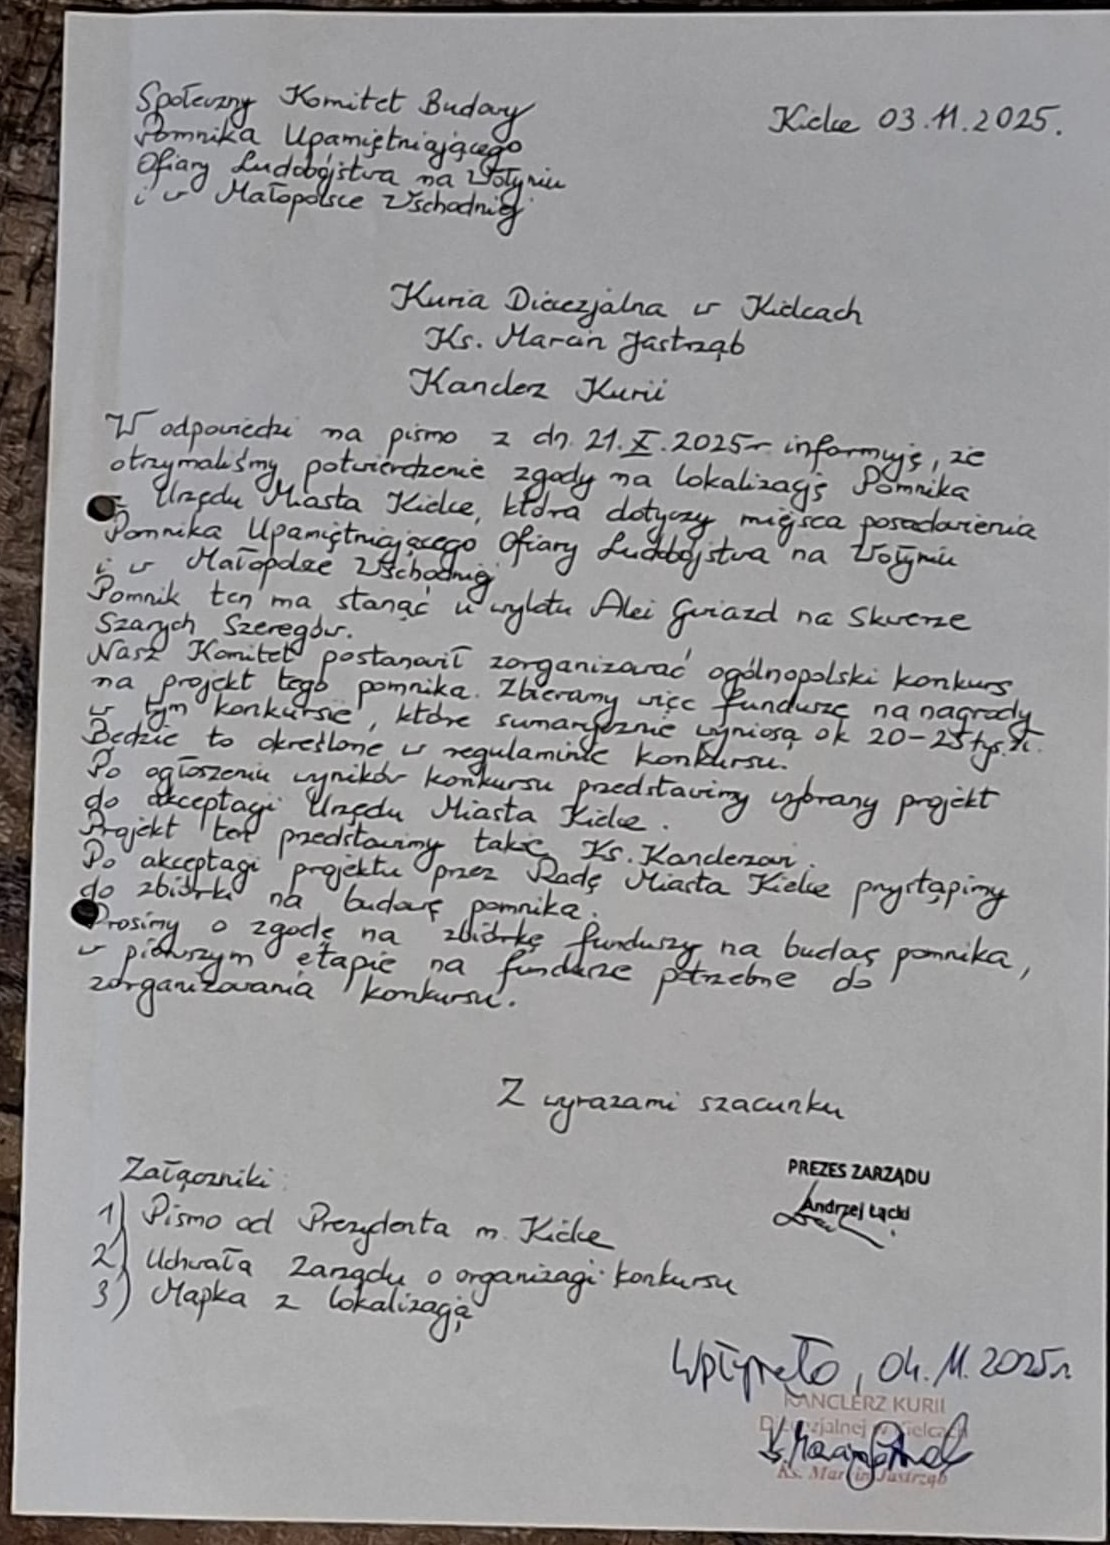 Społeczny Komitet Budowy
Pomnika Upamiętniającego
Ofiary Ludobójstwa na Wołyniu
i w Małopolsce Wschodniej
Kielce 03.11.2025.
Kuria Diecezjalna w Kielcach
Ks. Marcin Jastrząb
Kanclerz Kurii
W odpowiedzi na pismo z dn. 21.X.2025r informuję, że
otrzymaliśmy potwierdzenie zgody na lokalizację Pomnika
z Urzędu Miasta Kielce, która dotyczy miejsca posadowienia
Pomnika Upamiętniającego Ofiary Ludobójstwa na Wołyniu
i w Małopolsce Wschodniej
Pomnik ten ma stanąć u wylotu Alei Gwiazd na Skwerze
Szarych Szeregów.
Nasz Komitet postanowił zorganizować ogólnopolski konkurs
na projekt tego pomnika. Zbieramy więc fundusze na nagrody
w tym konkursie, które sumarycznie wyniosą ok 20-25 tys. zł.
Będzie to określone w regulaminie konkursu.
Po ogłoszeniu wyników konkursu przedstawimy wybrany projekt
do akceptacji Urzędu Miasta Kielce.
Projekt ten przedstawimy także Ks. Kanclerzowi.
Po akceptacji projektu przez Radę Miasta Kielce przystąpimy
do zbiórki na budowę pomnika.
Prosimy o zgodę na zbiórkę funduszy na budowę pomnika,
w pierwszym etapie na fundusze potrzebne do
zorganizowania konkursu.
Z wyrazami szacunku
PREZES ZARZĄDU
Andrzej Łącki
Załączniki:
1) Pismo od Prezydenta m. Kielce
2) Uchwała Zarządu o organizacji konkursu
3) Mapka z lokalizacją
Wpłynęło, 04.11.2025r
KANCLERZ KURII
Diecezjalnej w Kielcach
Ks. Marcin Jastrząb